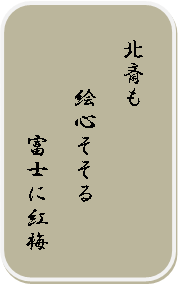 北斎も
絵心そそる
富士に紅梅